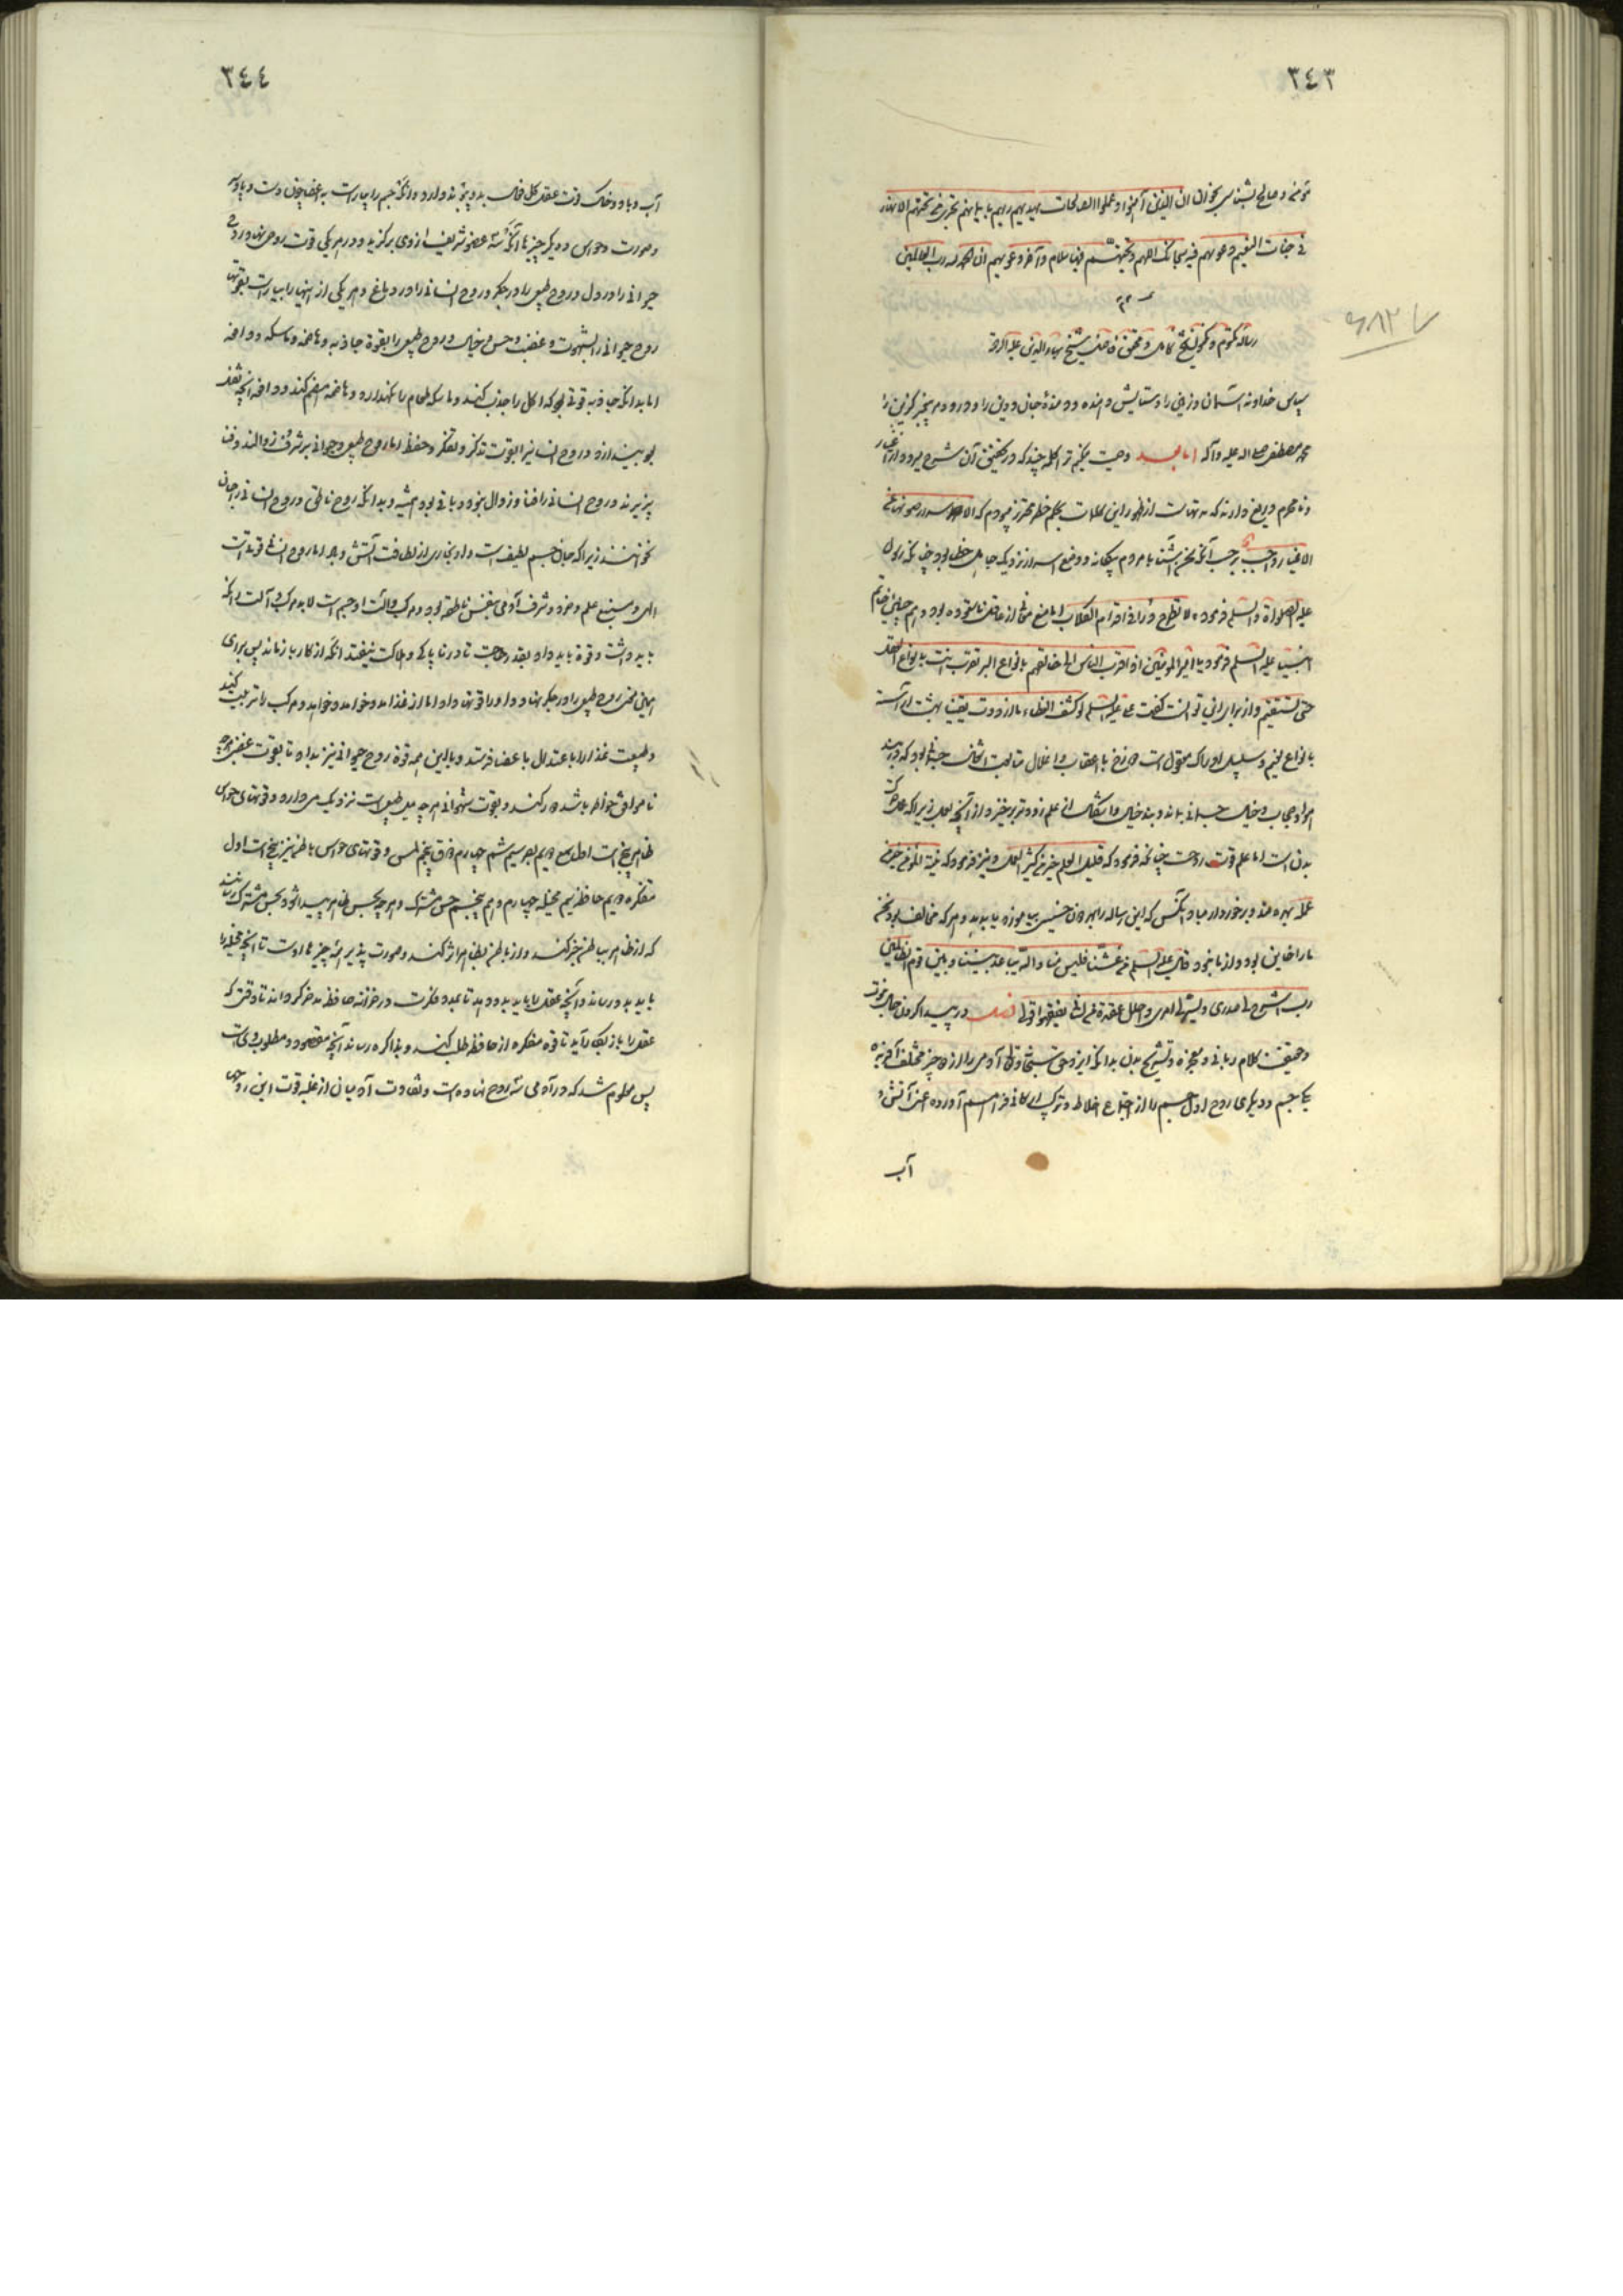 ٣٤٣
مؤمن و صالح بشناس بخوان ان الذین آمنوا و عملوا الصالحات یهدیهم ربهم بایمانهم تجری من تحتهم الانهار
فی جنات النعیم دعویهم فیها سبحانک اللهم و تحیتهم فیها سلام و آخر دعویهم ان الحمد لله رب العالمین
رساله شیخ شیخ بهاء الدین علیه الرحمه
سپاس خداوند آسمان و زمین را و ستایش دهنده جان و دین را و درود بر پیغمبر گزین را
محمد مصطفی صلی الله علیه و آله اما بعد وصیت میکنم ترا کلمه چند که در تحقیق آن شرح میرود از اغیار
و نامحرم دریغ دارند که از ظهور این کلمات بحکم خطر محترز بودم که الاسرار صونها عن
الاغیار واجب آنکه سخن آشنا با مردم بیگانه و وضع اسرار نزدیک جاهل خطا بود چنانکه رسول
علیه الصلواة و السلم فرموده لا تطرح الدر فی اقدام الکلاب اما منع سخن از عاقل ناستوده بود و هم چنانکه خاتم
انبیا علیه السلم فرمود یا امیر المؤمنین اذا تقرب الناس الی خالقهم بانواع البر تقرب انت بانواع العقل
حتی تستقیم و از برای این توانست گفت علی علیه السلم لو کشف الغطاء ما ازددت یقینا بهشت آراسته
بانواع نعیم و سلسبیل ادراک معقول است و دوزخ با عقاب و اغلال متابعت اشغال جسمانی بود که در بند
هوا و حجاب و خیال جسمانی بماند و بند خیال و اشکال از علم زودتر برخیزد از آنچه بعمل زیرا که عمل حرکت
بدن است اما علم قوت روحست چنانکه فرمود که قلیل العلم خیر من کثیر العمل و نیز فرمود که نیة المؤمن خیر من
عمله بهره‌مند و برخوردار مباد آنکس که این رساله را بهر دون خسیس بیاموزد یا بدهد و هر که مخالف بود سخن
ما را خاین بود و از ما نبود قال علیه السلم من غشنا فلیس منا و الله یباعد بیننا و بین قوم الظالمین
رب اشرح لی صدری و یسر لی امری و احلل عقدة من لسانی یفقهوا قولی فصل در پیدا کردن حال نبوت
و حقیقت کلام ربانی و معجزه و تشریح بدن بدانکه ایزد حق سبحانه و تعالی آدمی را از دو چیز مختلف آفریده
یکی جسم و دیگری روح اول جسم را از اجتماع اخلاط و ترکیب ارکانی فراهم آورده اعنی آتش و
آب
٣٤٤
آب و باد و خاک بدو پیوند دارد و آنگه جسم را بیاراست به اعضا چون دست و پا و سر
و صورت و حواس و دیگر چیزها آنگه سه عضو شریف از وی برگزید و در هر یکی قوت روحی نهاد روح
حیوانی را در دل و روح طبیعی را در جگر و روح انسانی را در دماغ و هر یکی از اینها را بیاراست بقوتها
روح حیوانی را بشهوت و غضب و حس و خیال و روح طبیعی را بقوة جاذبه و هاضمه و ماسکه و دافعه
اما بدانکه جاذبه قوتی بود که اکل را جذب کند و ماسکه طعام را نگهدارد و هاضمه هضم کند و دافعه آنچه ثقل
بود بیندازد و روح انسانی را بقوت تذکر و تفکر و حفظ اما روح طبیعی و حیوانی بر شرف زوالند و فنا
پذیرند و روح انسانی را فنا و زوال نبود و باقی بود همیشه و بدانکه روح ناطق و روح انسانی را جان
نخوانند زیرا که جان جسم لطیف است و او بخاری از لطافت آتش و هوا اما روح انسانی قوتیست
الهی و منبع علم و خرد و شرف آدمی بنفس ناطقه بود و مرکب و آلت او جسم است لابد مرکب و آلت را نگه
باید داشت و قوة باید داد بقدر حاجت تا در ناپاکی و هلاکت نیفتد آنگه از کار باز ماند پس برای
این معنی روح طبیعی را در جگر نهاد و او را قوتها داد اما از غذا مدد خواهد و مرکب را تربیت کند
و طبیعت غذا را باعتدال باعضا فرستد و با این همه قوة روح حیوانی نیز بداد تا بقوت غضبی هرچه
ناموافق خواطر باشد دور کند و بقوت شهوانی هر چه میل طبع است نزدیک می‌دارد و قوتهای حواس
ظاهر پنج است اول سمع دویم بصر سیم شم چهارم ذوق پنجم لمس و قوتهای حواس باطن نیز پنج است اول
متفکره دویم حافظه سیم مخیله چهارم وهم پنجم حس مشترک و هر چه بحس ظاهر پیدا شود بحس مشترک رسانند
که از ظاهر بباطن خبر کند و از باطن بظاهر اثر کند و صورت پذیر همه چیزها اوست تا آنچه مخیله را
باید بدو رساند و آنچه عقل را باید بدو دهد تا بمدد فکرت در خزانه حافظه مدخر گرداند تا وقتی که
عقل را باز بکار آید تا قوه متفکره از حافظه طلب کند و بذاکره رساند آنچه مقصود و مطلوب وی است
پس معلوم شد که در آدمی سه روح نهاده است و تفاوت آدمیان از غلبه قوت این روحهاست